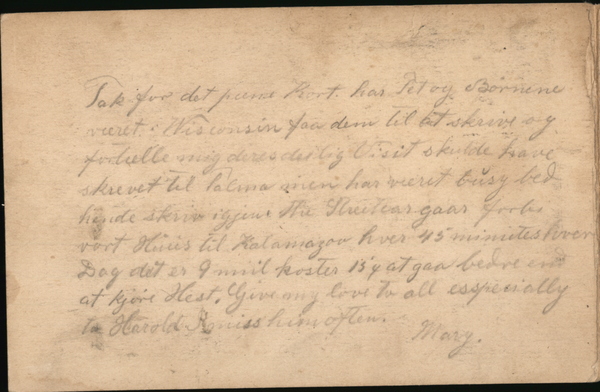 Tak for det pæne Kort. har Pet og Børnene
været i Wisconsin faa dem til at skrive og
fortelle mig deres deilig Visit skulde have
skrevet til Palma men har været busy bed
hende skriv igjen. The gaar forbi
vort Huus til Kalamazoo hver 45 minutes hver
Dag det er 9 mil koster 15¢ at gaa bedre end
at kjøre Hest. Give my love to all esspecially
to Harold Kniss him often.
Mary.